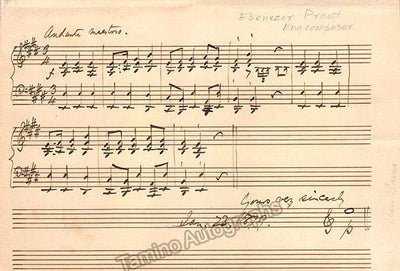 Ebenezer Prout
Eng composer
Andante maestoso.
Yours very sincerely
Jan
Tamino Autographs